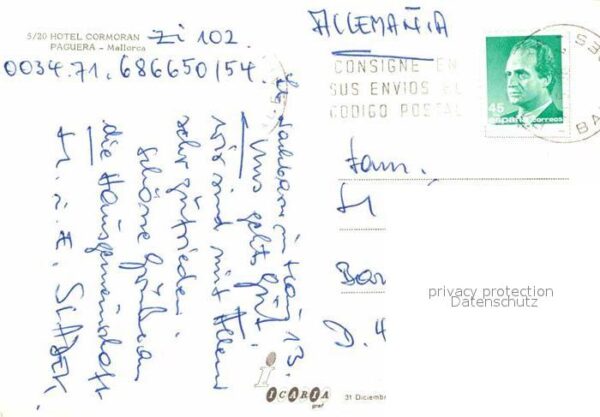 5/20 HOTEL CORMORAN
PAGUERA - Mallorca
Zi 102.
0034.71.686650/54.
ALLEMAÑIA
CONSIGNE EN
SUS ENVIOS EL
CODIGO POSTAL
45
españa correos
BA
in Haus 13.
Uns geht's gut.
wir sind mit Allem
sehr zufrieden.
schöne Grüße an
die Hausgemeinschaft
Fam.
Bar
D. 4
privacy protection
Datenschutz
ICARIA
graf
31 Diciemb